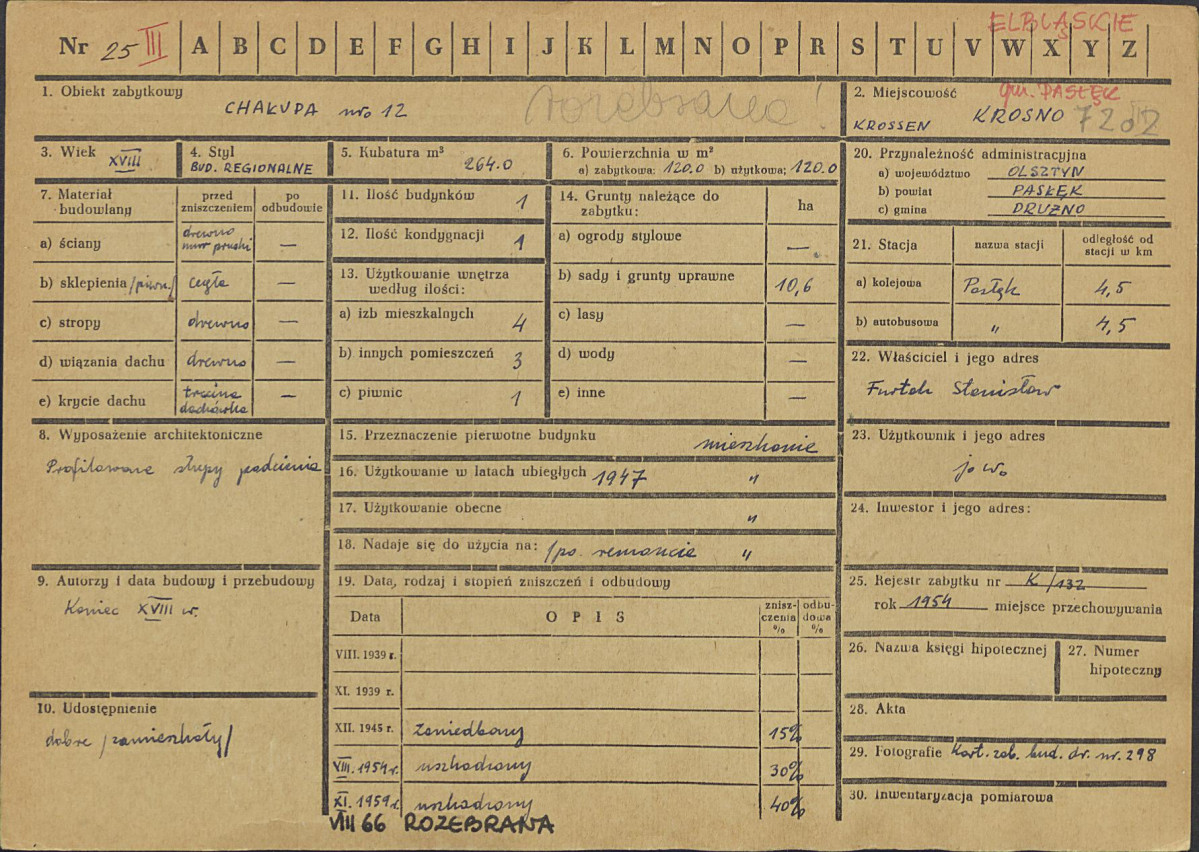 ELBLĄSKIE
Nr 25 III A B C D E F G H I J K L M N O P R S T U V W X Y Z
1. Obiekt zabytkowy
CHAŁUPA nro 12
rozebrana!
2. Miejscowość
gm. PASŁĘK
KROSSEN KROSNO
3. Wiek XVIII
4. Styl
BUD. REGIONALNE
5. Kubatura m³
264.0
6. Powierzchnia w m²
a) zabytkowa: 120.0 b) użytkowa: 120.0
20. Przynależność administracyjna
a) województwo OLSZTYN
b) powiat PASŁĘK
c) gmina DRUZNO
7. Materiał budowlany
przed zniszczeniem
po odbudowie
a) ściany drewno mur pruski —
b) sklepienia /piwn/ cegła —
c) stropy drewno —
d) wiązania dachu drewno —
e) krycie dachu trzcina dachówka —
11. Ilość budynków 1
12. Ilość kondygnacji 1
13. Użytkowanie wnętrza
według ilości:
a) izb mieszkalnych 4
b) innych pomieszczeń 3
c) piwnic 1
14. Grunty należące do
zabytku: ha
a) ogrody stylowe —
b) sady i grunty uprawne 10,6
c) lasy —
d) wody —
e) inne —
21. Stacja nazwa stacji odległość od stacji w km
a) kolejowa Pasłęk 4,5
b) autobusowa " 4,5
22. Właściciel i jego adres
Furtek Stanisław
8. Wyposażenie architektoniczne
Profilowane słupy podcienia
15. Przeznaczenie pierwotne budynku mieszkanie
16. Użytkowanie w latach ubiegłych 1947 "
17. Użytkowanie obecne "
18. Nadaje się do użycia na: /po remoncie "
23. Użytkownik i jego adres
jw.
24. Inwestor i jego adres:
9. Autorzy i data budowy i przebudowy
Koniec XVIII w.
19. Data, rodzaj i stopień zniszczeń i odbudowy
Data OPIS zniszczenia % odbudowa %
VIII. 1939 r.
XI. 1939 r.
XII. 1945 r. zaniedbany 15%
VIII. 1954 r. uszkodzony 30%
XI. 1959 r. uszkodzony 40%
VIII 66 ROZEBRANA
25. Rejestr zabytku nr K/132
rok 1954 miejsce przechowywania
26. Nazwa księgi hipotecznej
27. Numer
hipoteczny
10. Udostępnienie
dobre /zamieszkały/
28. Akta
29. Fotografie Kart. zab. bud. dr. nr. 298
30. Inwentaryzacja pomiarowa